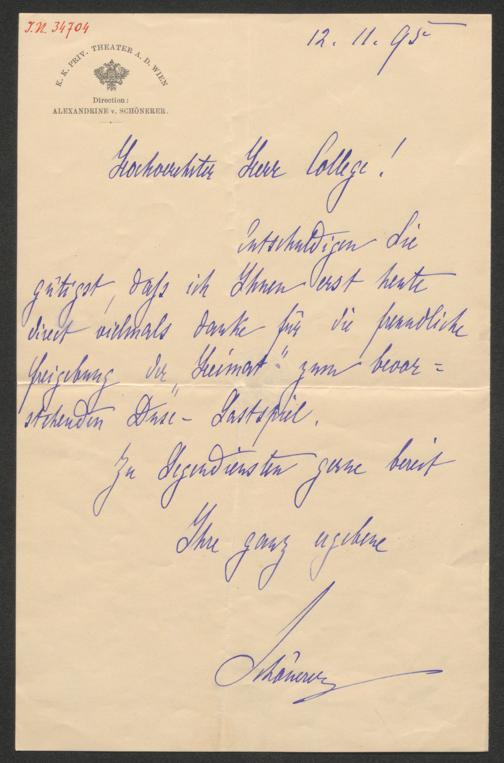 I.N. 34704
12. 11. 95
K. K. PRIV. THEATER A. D. WIEN
Direction:
ALEXANDRINE v. SCHÖNERER.
Hochverehrter Herr College!
Entschuldigen Sie
gütigst, daß ich Ihnen erst heute
direct vielmals danke für die freundliche
Freigebung der „Heimat" zum bevor=
stehenden Duse-Gastspiel.
Zu Gegendiensten gerne bereit
Ihre ganz ergebene
Schönerer